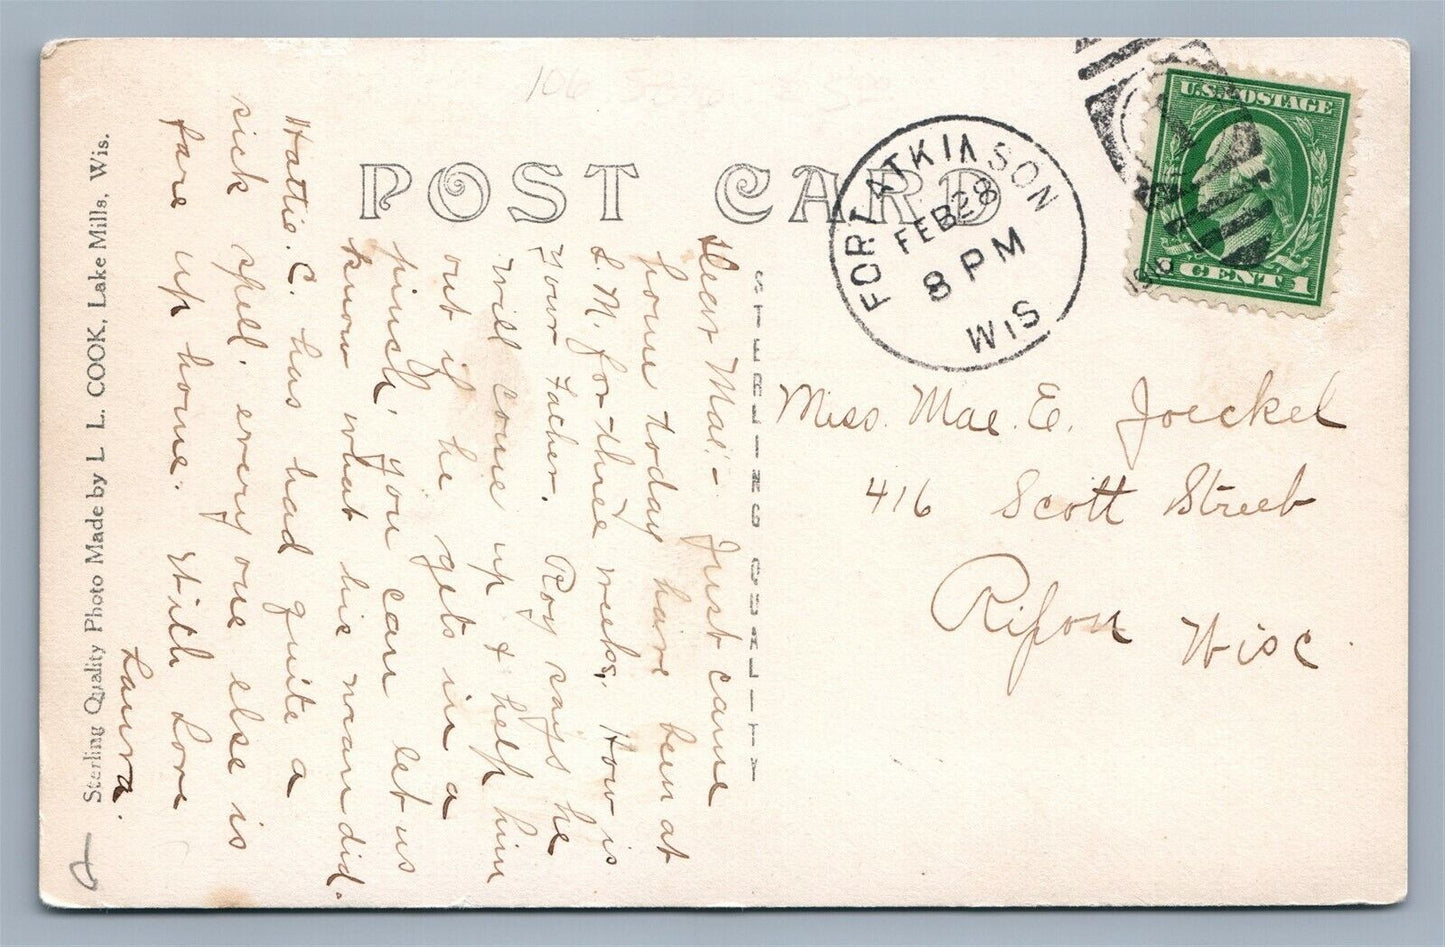 POST CARD
FORT ATKINSON
FEB 28
8 PM
WIS
U.S. POSTAGE
1 CENT 1
Miss. Mae. E. Joeckel
416 Scott Street
Ripon Wisc.
STERLING QUALITY
Dear Mae:- Just came
home today have been at
L. M. for three weeks. How is
your Father. Roy says he
will come up & help him
out if he gets in a
pinch, you can let us
know what his man did.
Hattie. C. has had quite a
sick spell, every one else is
fare up home. With Love
Laura.
Sterling Quality Photo Made by L. L. COOK, Lake Mills, Wis.